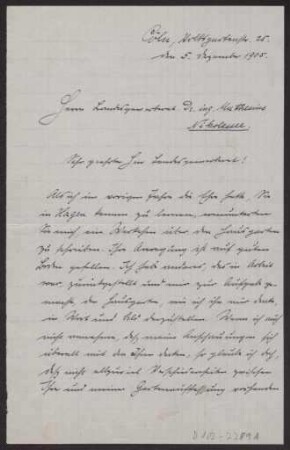 Cöln, Volksgartenstr 25.
den 5. Dezember 1905.
Herrn Landesgewerberat Dr. ing. Muthesius
Nikolassee
Sehr geehrter Herr Landesgewerberat!
Als ich im vorigen Jahre die Ehre hatte, Sie
in Hagen kennen zu lernen, ermunterten
Sie mich ein Werkchen über den Hausgarten
zu schreiben. Ihre Anregung ist auf guten
Boden gefallen. Ich habe anderes, das in Arbeit
war, zurückgestellt und mir zur Aufgabe ge-
macht den Hausgarten, wie ich ihn mir denke,
in Wort und Bild darzustellen. Wenn ich auch
nicht annehme, daß meine Anschauungen sich
überall mit den Ihren decken, so glaube ich doch,
daß nicht allzuviel Verschiedenheiten zwischen
Ihrer und meiner Gartenauffassung vorhanden